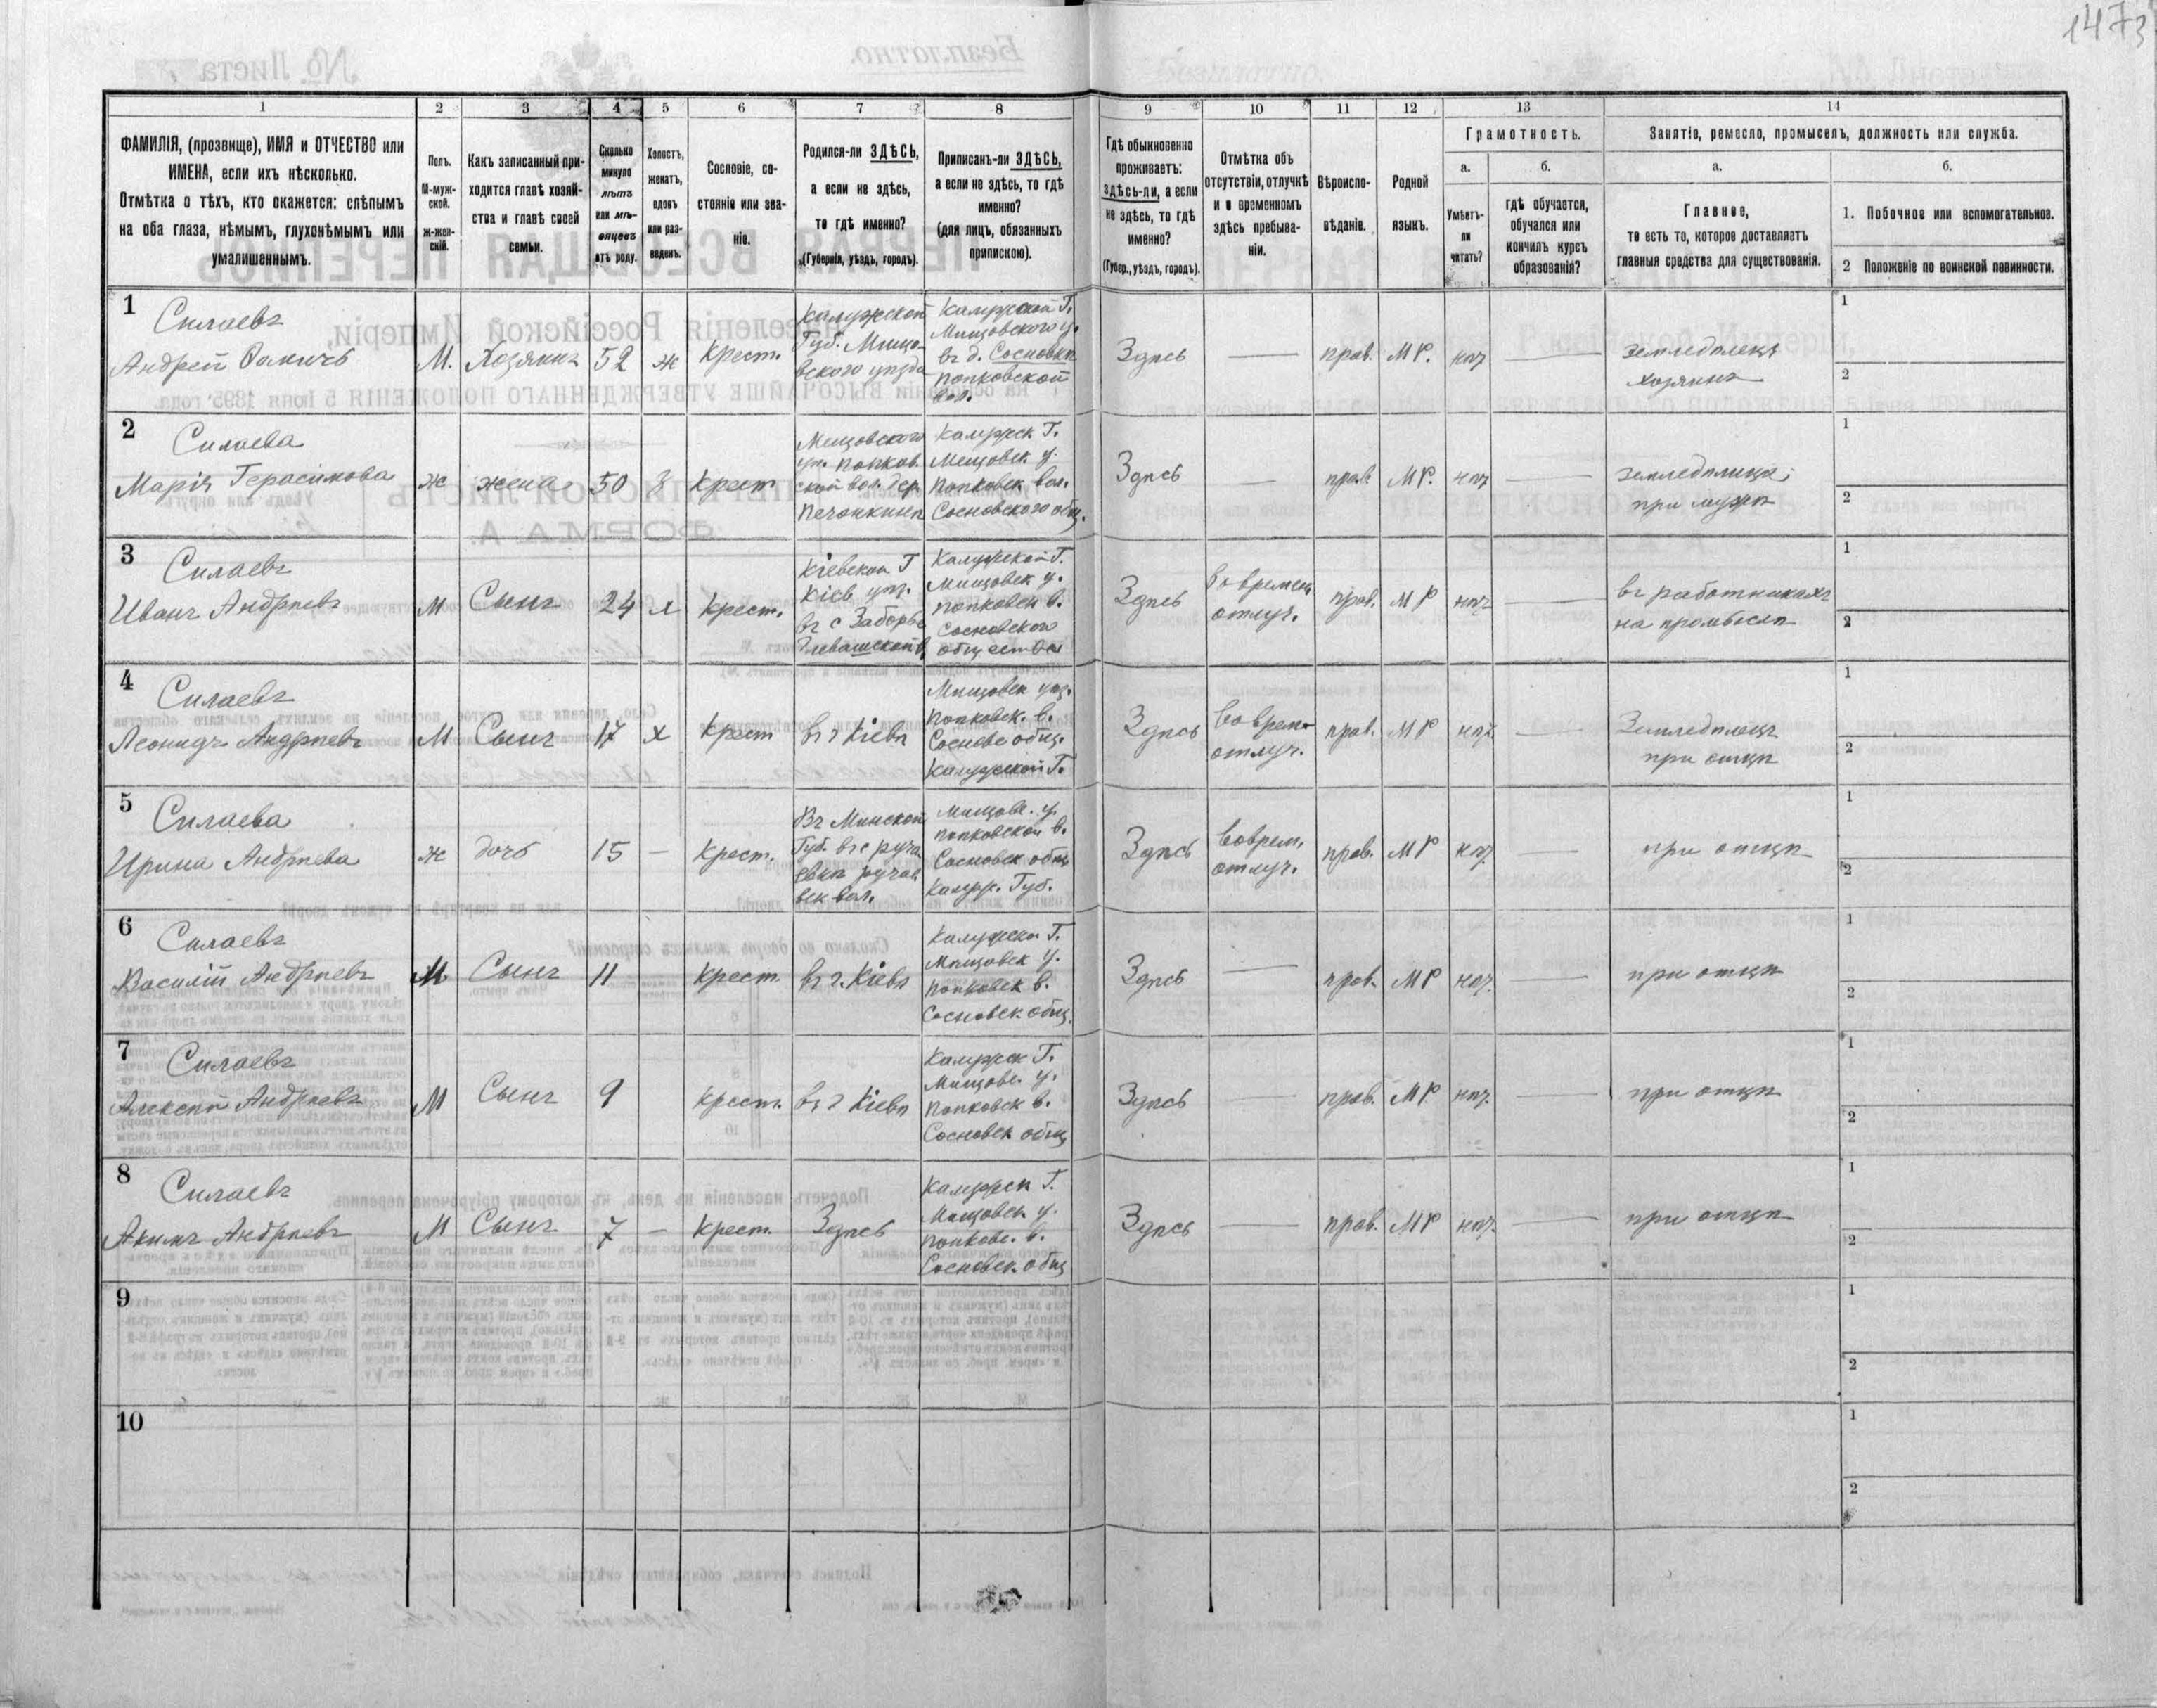 1473
1
2
3
4
5
6
7
8
9
10
11
12
13
14
ФАМИЛІЯ, (прозвище), ИМЯ и ОТЧЕСТВО или
ИМЕНА, если ихъ нѣсколько.
Отмѣтка о тѣхъ, кто окажется: слѣпымъ
на оба глаза, нѣмымъ, глухонѣмымъ или
умалишеннымъ.
Полъ.
М-муж-
ской.
Ж-жен-
скій.
Какъ записанный при-
ходится главѣ хозяй-
ства и главѣ своей
семьи.
Сколько
минуло
лѣтъ
или мѣ-
сяцевъ
отъ роду.
Холостъ,
женатъ,
вдовъ
или раз-
веденъ.
Сословіе, со-
стояніе или зва-
ніе.
Родился-ли ЗДѢСЬ,
а если не здѣсь,
то гдѣ именно?
(Губернія, уѣздъ, городъ).
Приписанъ-ли ЗДѢСЬ,
а если не здѣсь, то гдѣ
именно?
(для лицъ, обязанныхъ
припискою).
Гдѣ обыкновенно
проживаетъ:
здѣсь-ли, а если
не здѣсь, то гдѣ
именно?
(Губер., уѣздъ, городъ).
Отмѣтка объ
отсутствіи, отлучкѣ
и о временномъ
здѣсь пребыва-
ніи.
Вѣроиспо-
вѣданіе.
Родной
языкъ.
Грамотность.
а.
Умѣетъ-
ли
читать?
б.
гдѣ обучается,
обучался или
кончилъ курсъ
образованія?
Занятіе, ремесло, промыселъ, должность или служба.
а.
Главное,
то есть то, которое доставляетъ
главныя средства для существованія.
б.
1. Побочное или вспомогательное.
2 Положеніе по воинской повинности.
1
Силаевъ
Андрей
М. Хозяинъ 52 ж Крест.
Калужской
Губ. Мищо-
вского уѣзда
Калужской Г.
Мищовского у.
въ д. Сосновкѣ
Попковской
вол.
Здѣсь — прав. М Р. нѣт —
земледѣлецъ
хозяинъ
1
2
2
Силаева
Марія Герасимова
ж жена 50 З Крест
Мещовского
уѣ. попков
ской вол. дер.
Печонкинѣ
Калужск Г.
Мещовск у.
Попковск вол.
Сосновского общ.
Здѣсь — прав. М Р. нѣт
земледѣлица
при мужѣ
1
2
3
Силаевъ
Иванъ Андрѣевъ
М Сынъ 24 Крест.
Кіевской Г
Кіев. уѣз.
въ с Заборье
Калужской Г.
Мищовск у.
попковск в.
Сосновского
общества
Здѣсь
Во времен
отлуч.
прав. М Р нѣт —
въ работникахъ
на промыслѣ
1
2
4
Силаевъ
Леонидъ Андрѣевъ
М Сынъ 17 х Крест въ г Кіевѣ
Мищовск уѣз.
Попковск. в.
Сосновс общ.
Калужской Г.
Здѣсь
Во врем
отлуч.
прав. М Р нѣт —
Земледѣлецъ
при отцѣ
1
2
5
Силаева
Ирина Андрѣева
ж дочь 15 — Крест.
Въ Минской
Губ. въ с руча
евкѣ ручае
вск вол.
Мищовс. у.
попковской в.
Сосновск общ
Калуж. Губ.
Здѣсь
Во врем.
отлуч.
прав. М Р нѣт —
при отцѣ
1
2
6
Силаевъ
Василій Андрѣевъ
М Сынъ 11 Крест. въ г. Кіевѣ
Калужск Г.
Мищовск у.
Попковск в.
Сосновск общ.
Здѣсь — прав. М Р нѣт. —
при отцѣ
1
2
7
Силаевъ
Алексѣй Андрѣевъ
М Сынъ 9 Крест. въ г Кіевѣ
Калужск Г.
Мищовс. у.
Попковск в.
Сосновск общ
Здѣсь — прав. М Р нѣт. —
при отцѣ
1
2
8
Силаевъ
Акимъ Андрѣевъ
М Сынъ 7 — Крест. Здѣсь
Калужск Г.
Мещовск у.
Попковс. в.
Сосновск. общ
Здѣсь — прав. М Р нѣт. —
при отцѣ
1
2
9
1
2
10
1
2